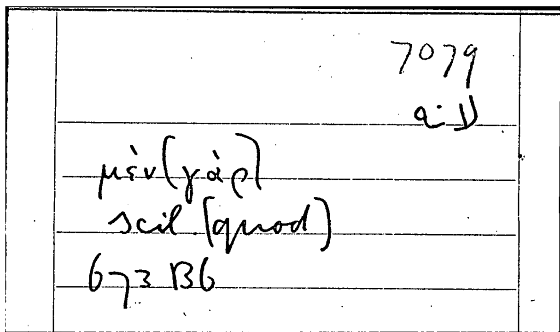 7079
لانه
μὲν (γὰρ)
scil (quod)
673 B6